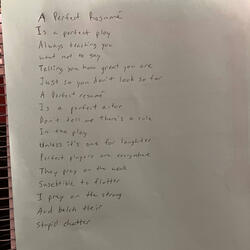 A Perfect Resumé
Is a perfect ploy
Always teaching you
what not to say
Telling you how great you are
Just so you don't look so far
A Perfect resumé
Is a perfect actor
Don't tell me there's a role
In the play
Unless it's one for laughter
Perfect players are everywhere
They prey on the weak
Suscetible to flatter
I prey on the strong
And belch their
Stupid chatter